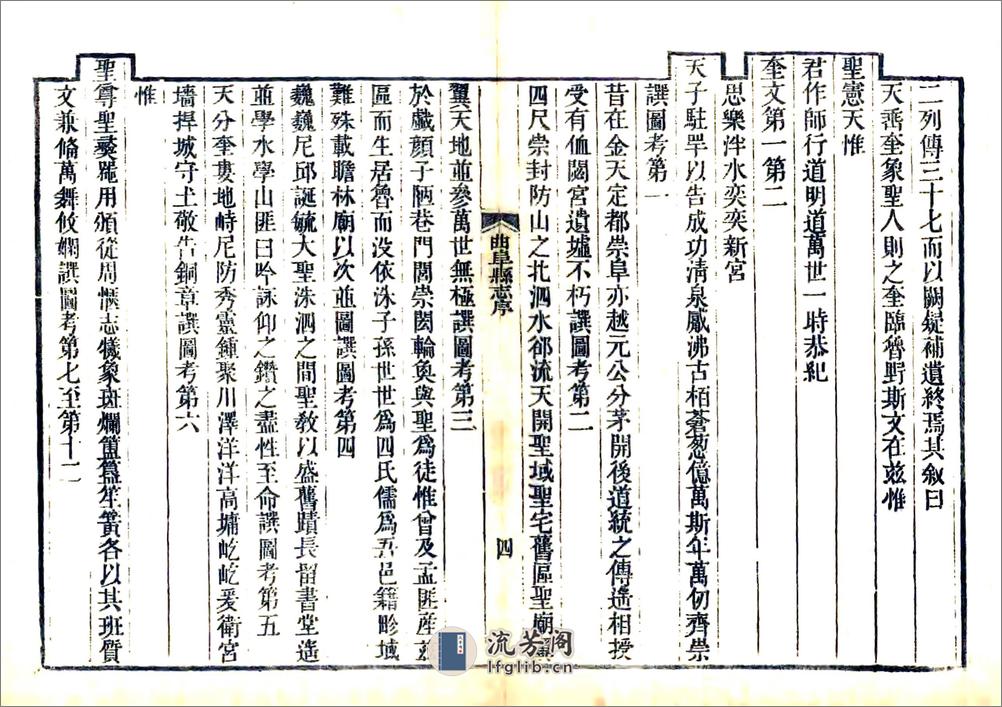 二列傳三十七而以闕疑補遺終焉其敘曰
天垂奎象聖人則之奎臨魯野斯文在茲惟
聖憲天惟
君作師行道明道萬世一時恭紀
奎文第一第二
思樂泮水奕奕新宮
天子駐罕以告成功清泉觱沸古栢蒼蔥億萬斯年萬仞齊崇
譔圖考第一
昔在金天定都崇阜亦越元公分茅開後道統之傳遙相授
受有侐閟宮遺墟不朽譔圖考第二
四尺崇封防山之北泗水卻流天開聖域聖宅舊區聖廟
翼天地並參萬世無極譔圖考第三
於戲顏子陋巷門閭崇閎輪奐與聖為徒惟曾及孟匪產茲
區而生居魯而沒依洙子孫世世為四氏儒為吾邑籍畛域
難殊載瞻林廟以次並圖譔圖考第四
巍巍尼邱誕毓大聖洙泗之間聖教以盛舊蹟長留書堂造
並學水學山匪曰吟詠仰之鑽之盡性至命譔圖考第五
天分奎婁地峙尼防秀靈鍾聚川澤洋洋高墉屹屹爰衛宮
墻捍城守土敬告銅章譔圖考第六
惟
聖尊聖彝器用頒從周愜志犧象斑斕簠簋笙簧各以其班質
文兼備萬舞攸嫻譔圖考第七至第十二
曲阜縣志序
四
流芳阁
lfglib.cn